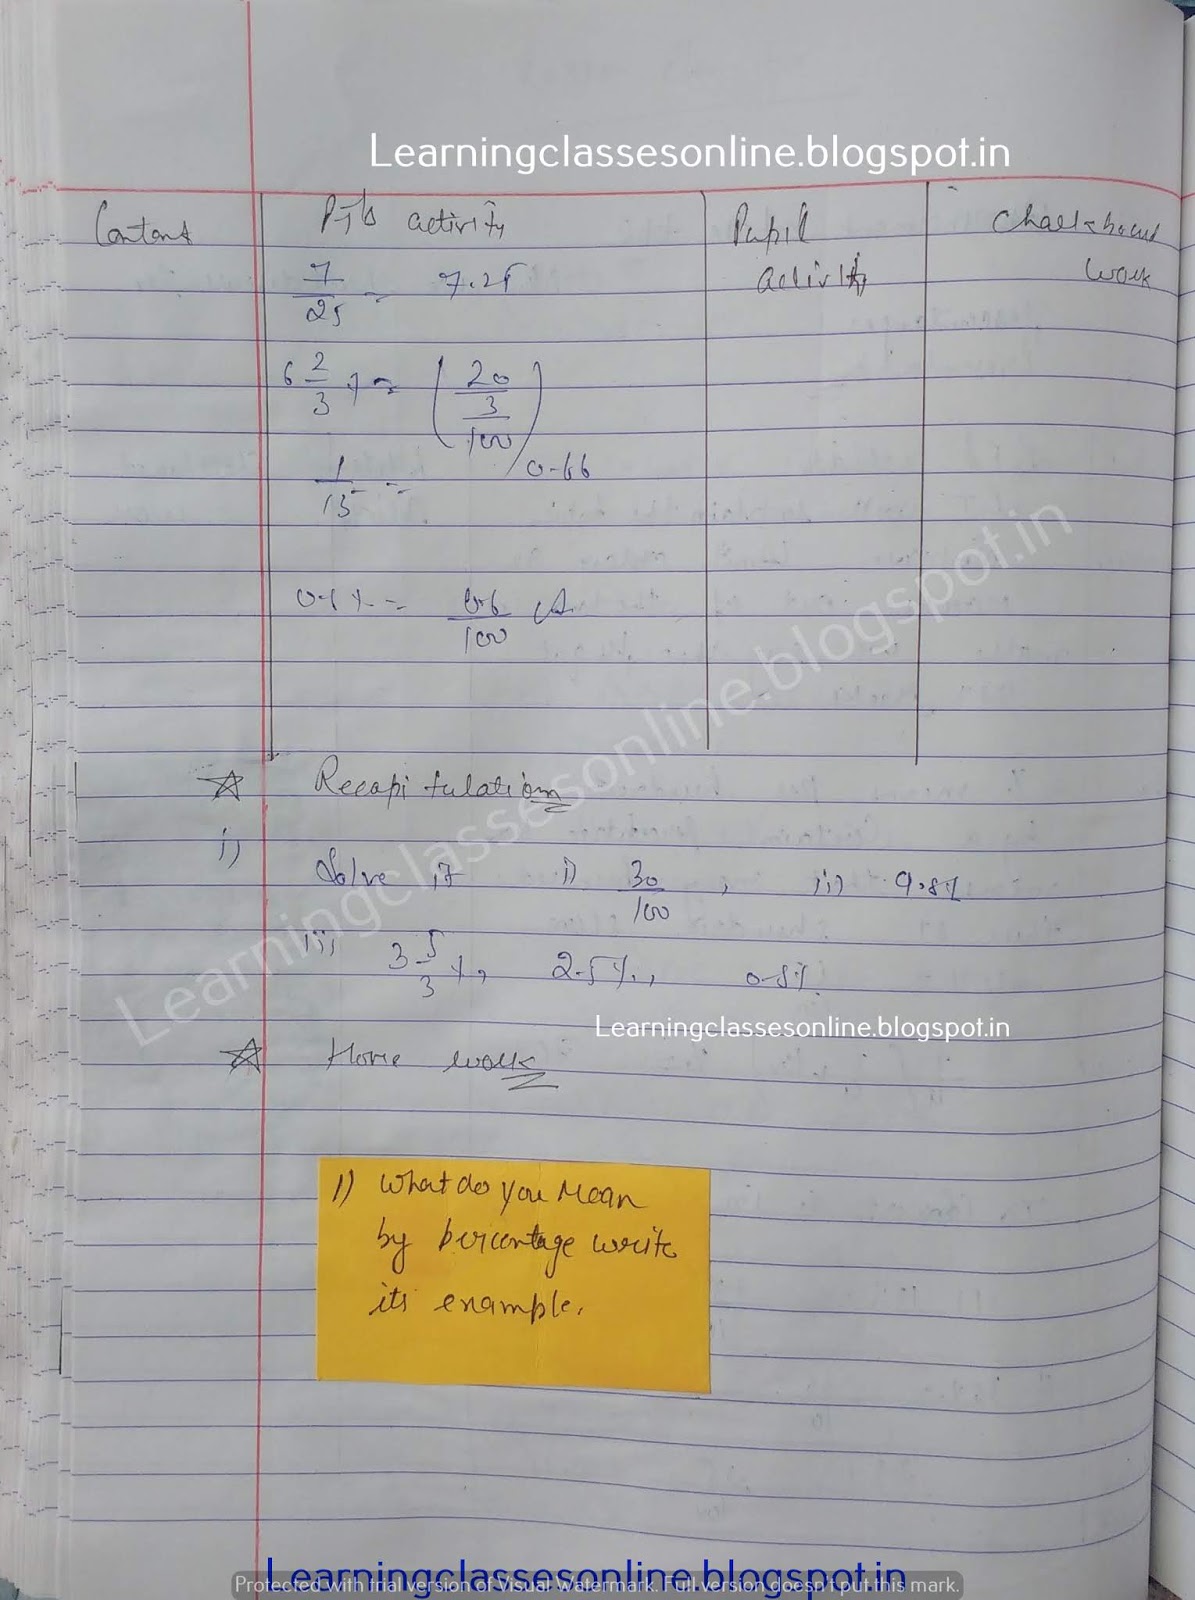 Learningclassesonline.blogspot.in
Content P.T's activity Pupil activity Chalk-board work
7/25 = 7.25
6 2/3 % = (20/3/100)
1/15 = 0.66
= 0.6/100
☆ Recapitulation
i) Solve it i) 30/100 , ii) 9.8%
iii) 3 5/3 %, 2.5%, 0.8%
Learningclassesonline.blogspot.in
Learningclassesonline.blogspot.in
☆ Home work
1) What do you mean
by percentage write
its example.
Learningclassesonline.blogspot.in
Protected with trial version of Visual Watermark. Full version doesn't put this mark.